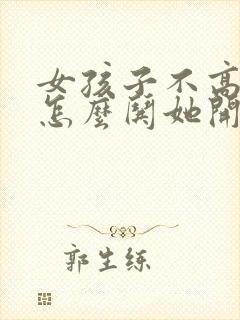 女孩子不高
怎麼鬨她開
郭生练